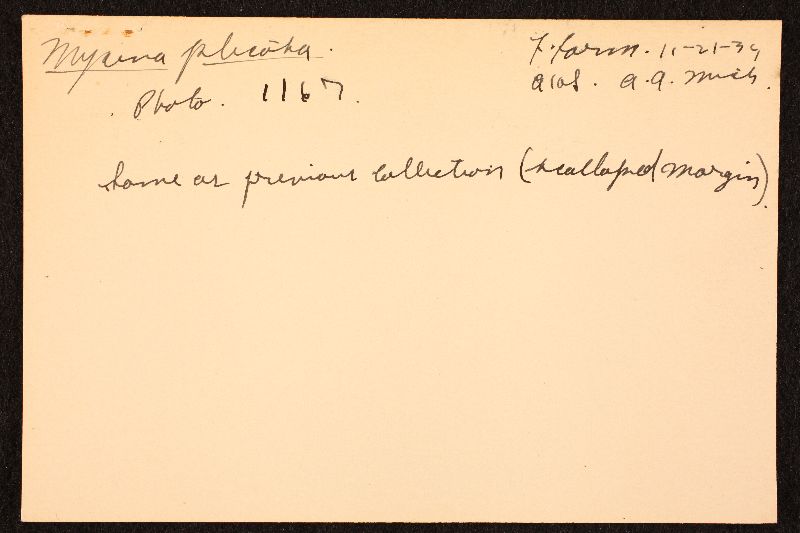 Mycena plicosa.
F. farm. 11-21-34
Photo. 1167.
A. A. Mich.
Same as previous collection (scalloped margin).